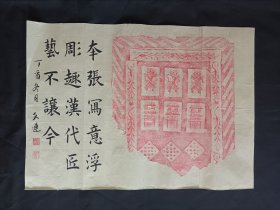 本張寫意浮
彫趣漢代匠
藝不讓今
丁酉冬月